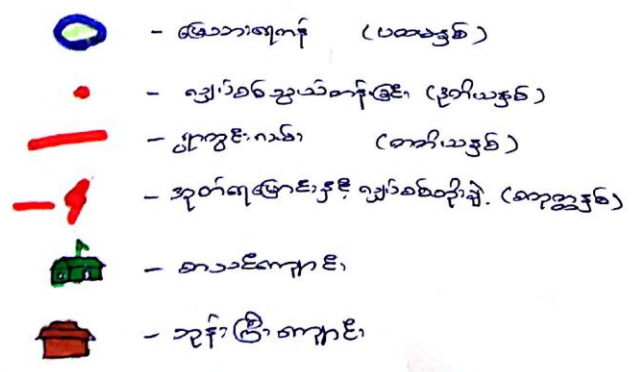 - မြေသားရေကန် (ပထမနှစ်)
- လျှပ်စစ်သွယ်တန်းခြင်း (ဒုတိယနှစ်)
- ရွာတွင်းလမ်း (တတိယနှစ်)
- အုတ်ရေမြောင်းနှင့် လျှပ်စစ်တိုးချဲ့ (စတုတ္ထနှစ်)
- စာသင်ကျောင်း
- ဘုန်းကြီးကျောင်း